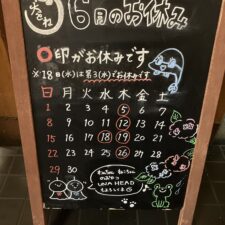 6月のお休み
〇印がお休みです
※18日(水)は第3(水)でお休みです
日 月 火 水 木 金 土
1 2 3 4 5 6 7
8 9 10 11 12 13 14
15 16 17 18 19 20 21
22 23 24 25 26 27 28
29 30
LOVA HEAD